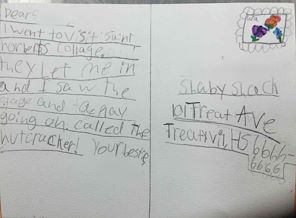 Dear
I went to Visit Saint
Norberts Collage.
they let me in
and I saw the
stage and the play
going on. called the
nutcracker! Your bestie
Shaby Shack
01 Treat AVE
Treatvil HS 66666-
6666